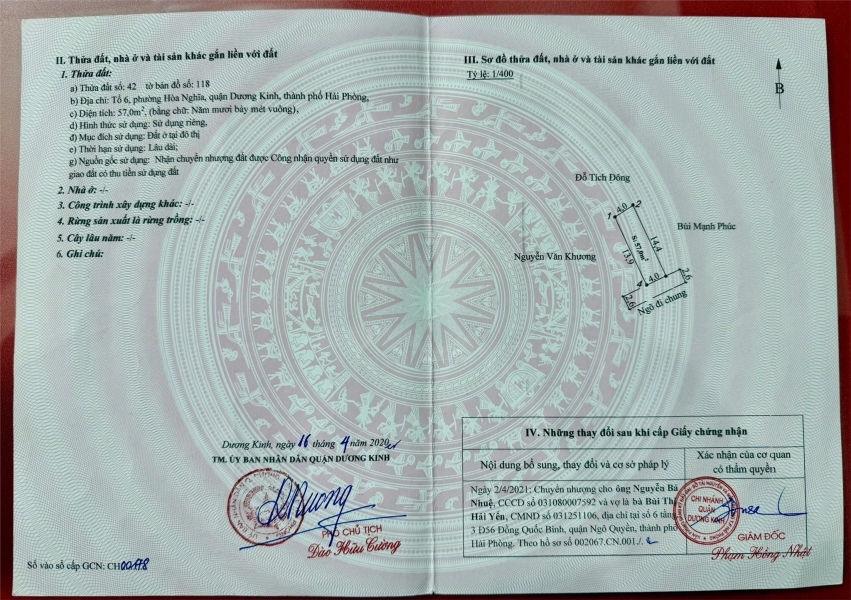 II. Thửa đất, nhà ở và tài sản khác gắn liền với đất
1. Thửa đất:
a) Thửa đất số: 42 tờ bản đồ số: 118
b) Địa chỉ: Tổ 6, phường Hòa Nghĩa, quận Dương Kinh, thành phố Hải Phòng,
c) Diện tích: 57,0m², (bằng chữ: Năm mươi bảy mét vuông),
d) Hình thức sử dụng: Sử dụng riêng,
đ) Mục đích sử dụng: Đất ở tại đô thị
e) Thời hạn sử dụng: Lâu dài;
g) Nguồn gốc sử dụng: Nhận chuyển nhượng đất được Công nhận quyền sử dụng đất như
giao đất có thu tiền sử dụng đất
2. Nhà ở: -/-
3. Công trình xây dựng khác: -/-
4. Rừng sản xuất là rừng trồng: -/-
5. Cây lâu năm: -/-
6. Ghi chú:
Dương Kinh, ngày 16 tháng 4 năm 2020
TM. ỦY BAN NHÂN DÂN QUẬN DƯƠNG KINH
PHÓ CHỦ TỊCH
Đào Hữu Cường
Số vào sổ cấp GCN: CH00178
III. Sơ đồ thửa đất, nhà ở và tài sản khác gắn liền với đất
Tỷ lệ: 1/400
B
Đỗ Tích Đông
1 4,0 2
Bùi Mạnh Phúc
Nguyễn Văn Khương
13,9 S: 57,0m² 14,4
4 4,0
2,6 2,6
Ngõ đi chung
IV. Những thay đổi sau khi cấp Giấy chứng nhận
Nội dung bổ sung, thay đổi và cơ sở pháp lý
Xác nhận của cơ quan
có thẩm quyền
Ngày 2/4/2021: Chuyển nhượng cho ông Nguyễn Bá
Nhuệ, CCCD số 031080007592 và vợ là bà Bùi Thị
Hải Yến, CMND số 031251106, địa chỉ tại số 6 tầng
3 Đ56 Đồng Quốc Bình, quận Ngô Quyền, thành phố
Hải Phòng. Theo hồ sơ số 002067.CN.001./.
CHI NHÁNH
QUẬN
DƯƠNG KINH
GIÁM ĐỐC
Phạm Hồng Nhật